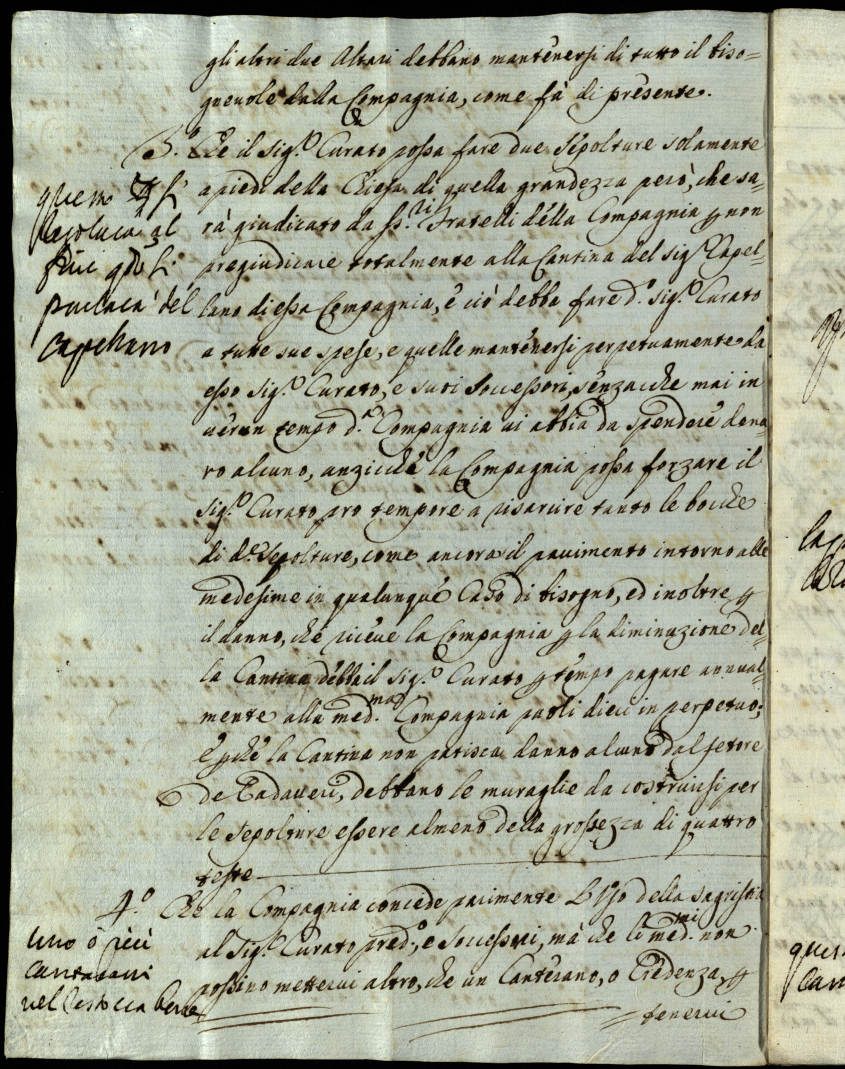 gli altri due Altari debbano mantenersi di tutto il biso=
gneuole dalla Compagnia, come fà di presente.
3.° Che il Sig.° Curato possa fare due Sepolture solamente
a piedi della Chiesa di quella grandezza però, che sa=
rà giudicato da ss.ri Fratelli della Compagnia p non
pregiudicare totalmente alla Cantina del Sig.° Capel=
lano di essa Compagnia, e ciò debba fare d.° Sig.° Curato
a tutte sue spese, e quelle mantenersi perpetuamente da
esso Sig.° Curato, e suoi Successori, senzacche mai in
uerun tempo d.a Compagnia ui abbia da spendere dena=
ro alcuno, anzicchè la Compagnia possa forzare il
Sig.° Curato pro tempore a risarcire tanto le bocche
di d.e Sepolture, come ancora il pauimento intorno alle
medesime in qualunque Caso di bisogno, ed inoltre p
il danno, che riceue la Compagnia p la diminuzione del=
la Cantina debba il Sig.° Curato p tempo pagare annual=
mente alla med.ma Compagnia paoli dieci in perpetuo;
E pchè la Cantina non patisca danno alcuno dal fetore
de Cadaueri, debbano le muraglie da costruirsi per
le Sepolture essere almeno della grossezza di quattro
teste
4.° Che la Compagnia concede parimente L'Uso della Sagristia
al Sig.° Curato pred.°, e Successori, mà che li med.mi non
possino metterui altro, che un Canterano, o Credenza, p
tenerui
al
del
Capellano
uno ò più
canterani